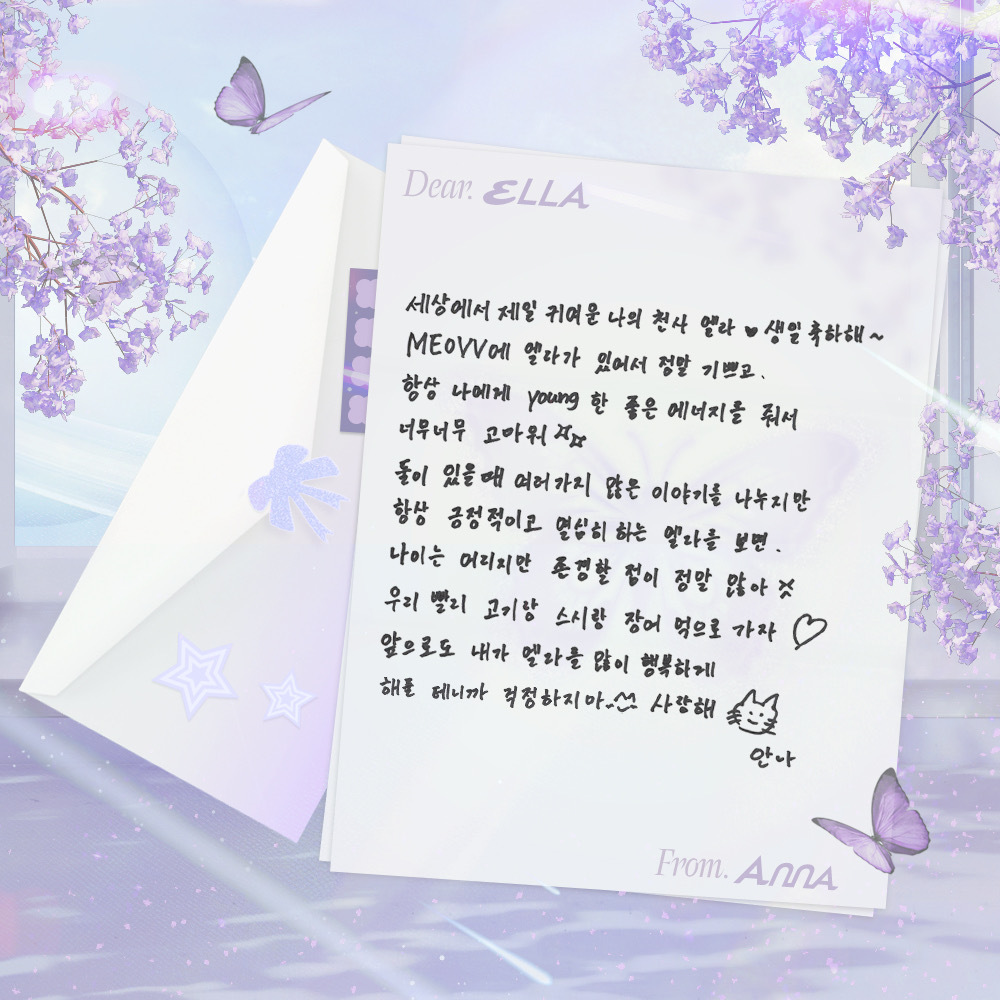 Dear. ELLA
세상에서 제일 귀여운 나의 천사 엘라 ♥ 생일 축하해 ~
MEOVV에 엘라가 있어서 정말 기쁘고.
항상 나에게 young 한 좋은 에너지를 줘서
너무너무 고마워
둘이 있을때 여러가지 많은 이야기를 나누지만
항상 긍정적이고 열심히 하는 엘라를 보면.
나이는 어리지만 존경할 점이 정말 많아
우리 빨리 고기랑 스시랑 장어 먹으로 가자 ♡
앞으로도 내가 엘라를 많이 행복하게
해줄 테니까 걱정하지마 사랑해
안나
From. ANNA